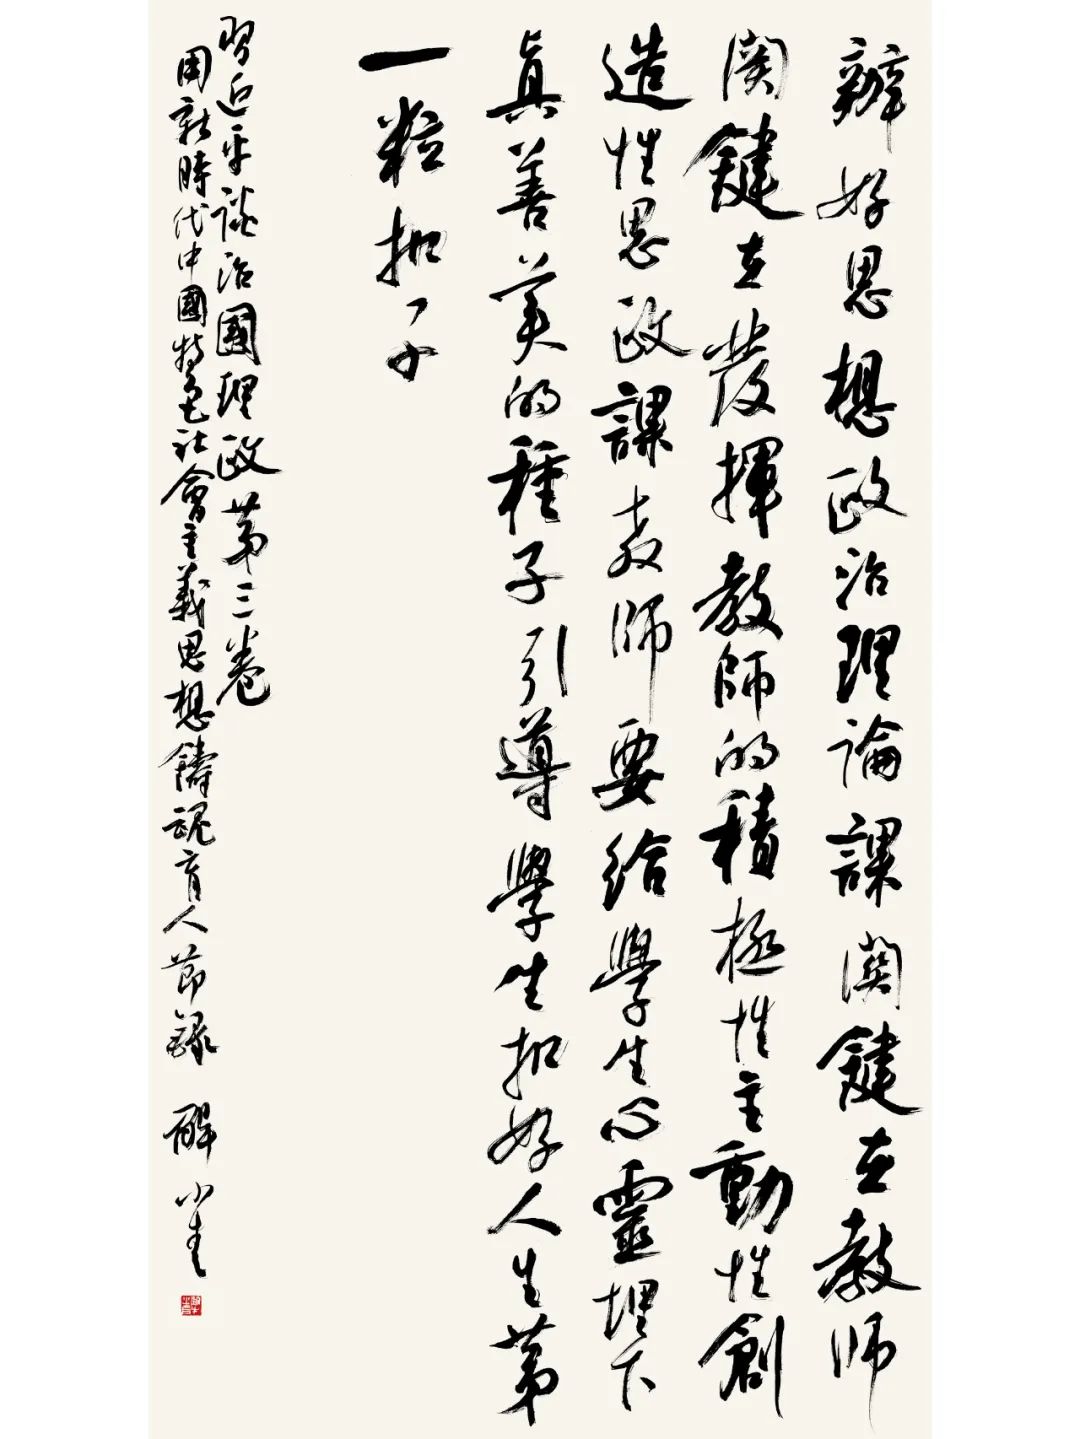 辦好思想政治理論課關鍵在教師
関鍵在發揮教師的積極性主動性創
造性思政課教師要給學生心靈埋下
真善美的種子引導學生扣好人生第
一粒扣子
習近平談治國理政第三卷
用新時代中國特色社會主義思想鑄魂育人節錄 解小青